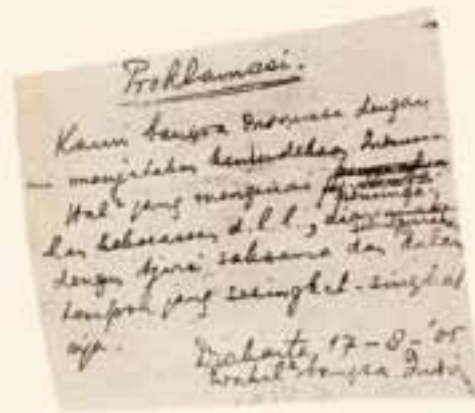 Proklamasi.
Kami bangsa Indonesia dengan
ini menjatakan kemerdekaan
Hal² jang mengenai
dan kekoeasaan d.l.l.,
dengan tjara saksama dan dalam
tempoh jang sesingkat-singkat
nja.
Djakarta, 17-8-'05
Wakil² bangsa Indo